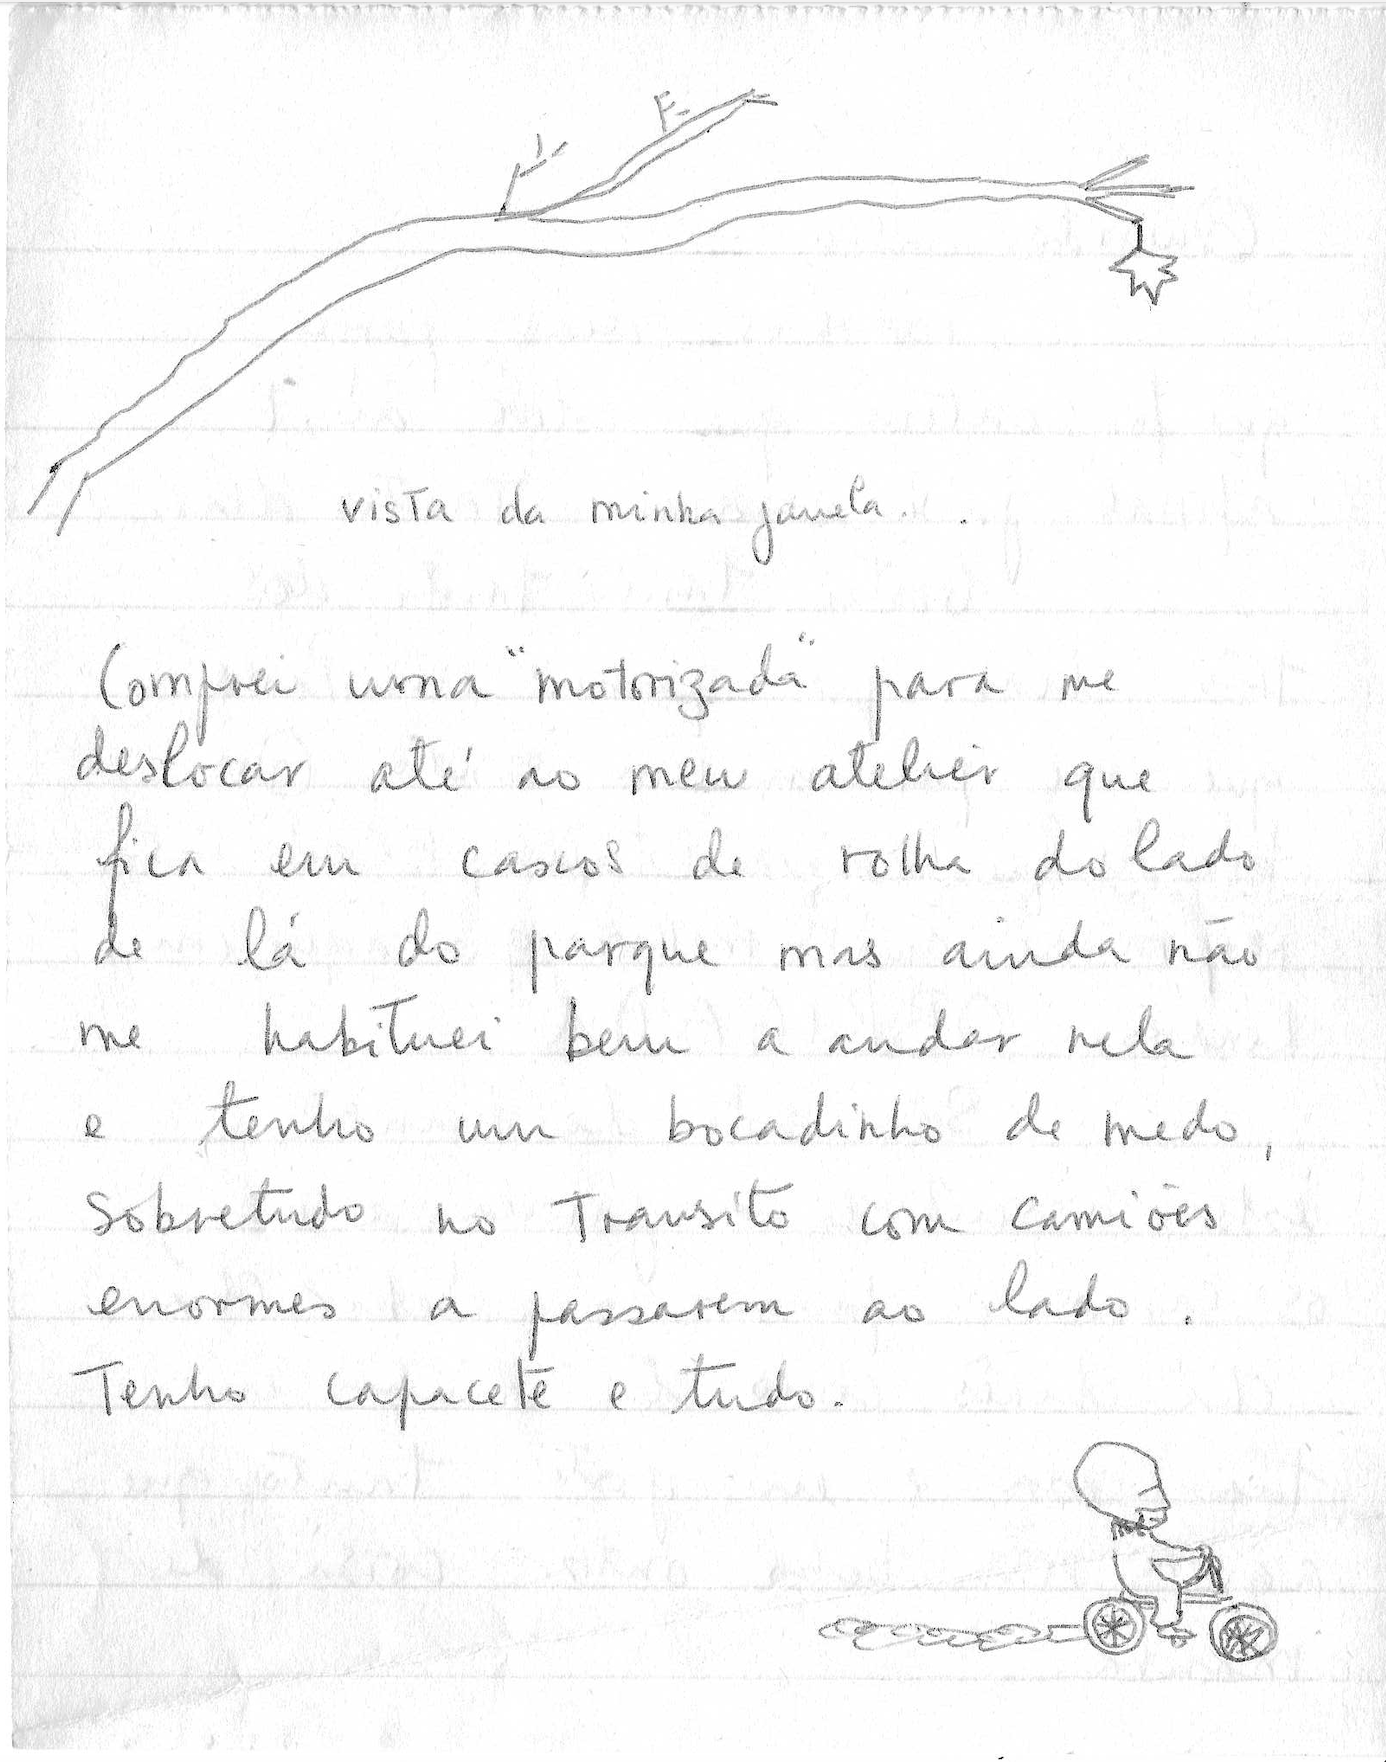 vista da minha janela. .
Comprei uma "motorizada" para me
deslocar até ao meu atelier que
fica em cascos de rolha do lado
de lá do parque mas ainda não
me habituei bem a andar nela
e tenho um bocadinho de medo,
sobretudo no Transito com camiões
enormes a passarem ao lado.
Tenho capacete e tudo.